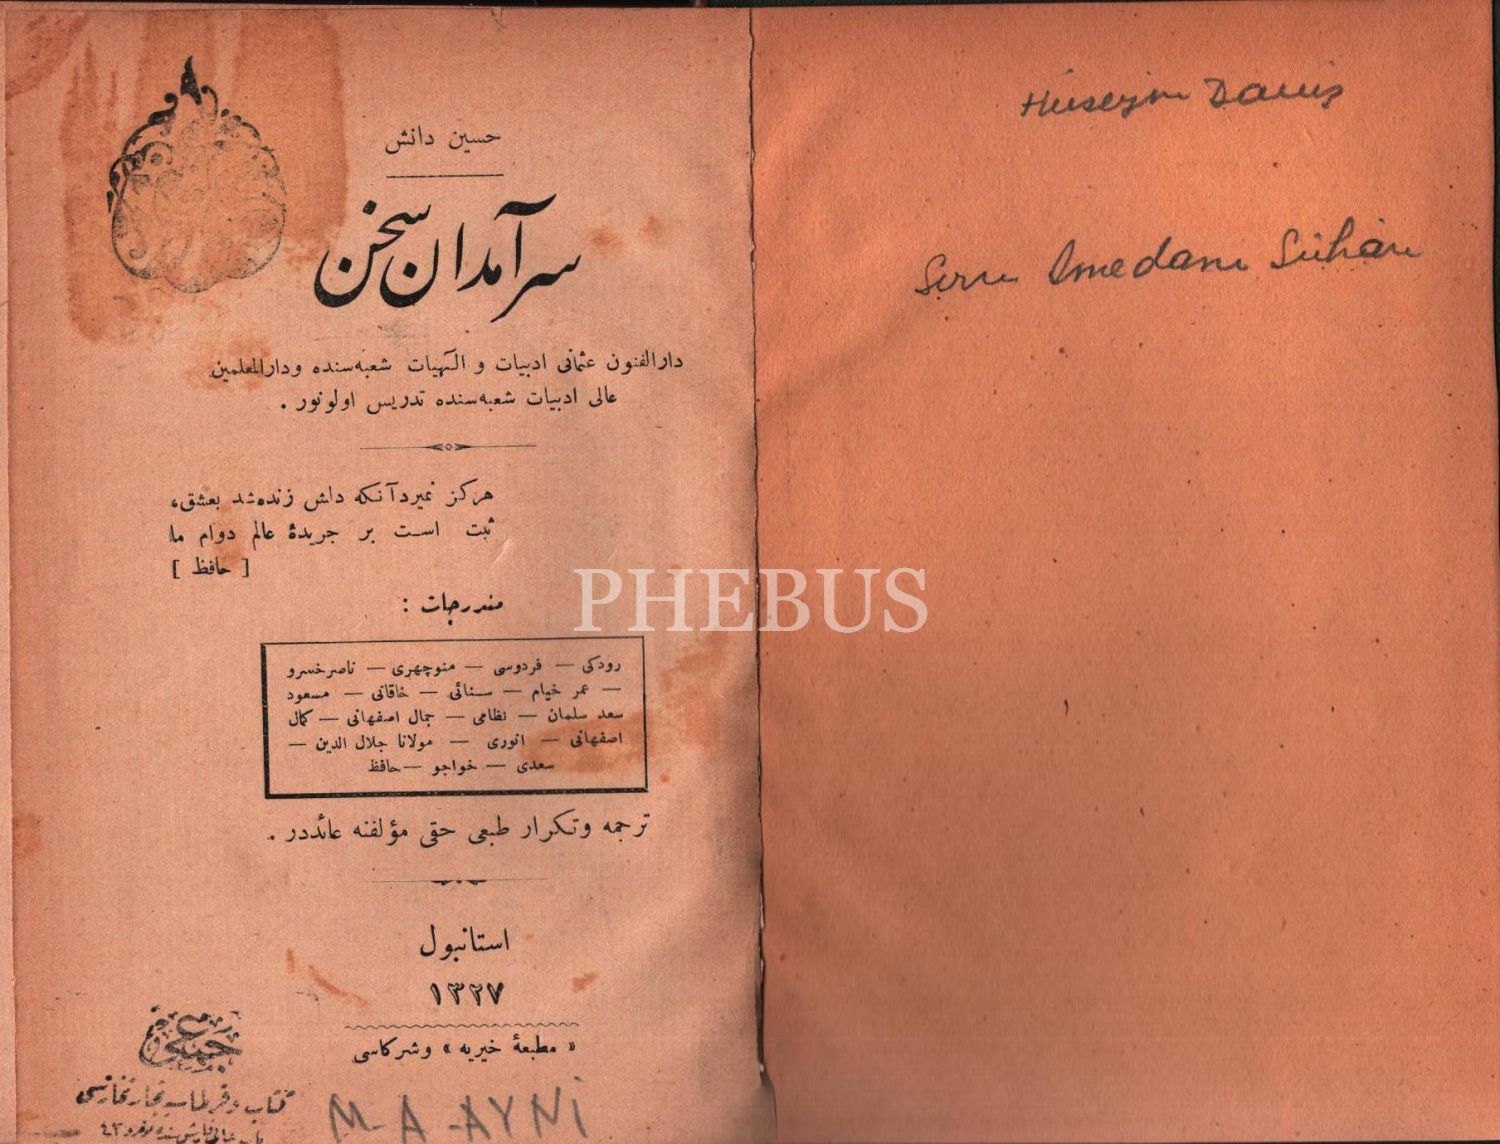 حسین دانش
سرآمدان سخن
دارالفنون عثمانی ادبیات و الٓهیات شعبه‌سنده ودارالمعلمین
عالی ادبیات شعبه‌سنده تدریس اولونور .
هرکز نمیردآنکه دلش زنده‌شد بعشق،
ثبت است بر جریدۀ عالم دوام ما
[ حافظ ]
مندرجات :
رودکی — فردوسی — منوچهری — ناصرخسرو
— عمر خیام — سنائی — خاقانی — مسعود
سعد سلمان — نظامی — جمال اصفهانی — کمال
اصفهانی — انوری — مولانا جلال الدین —
سعدی — خواجو — حافظ
ترجمه وتکرار طبعی حقی مؤلفنه عائددر .
استانبول
۱۳۲۷
« مطبعۀ خیریه » وشرکاسی
M-A-AYNi
Hüseyin Daniş
Sern Amedanı Sühan
PHEBUS